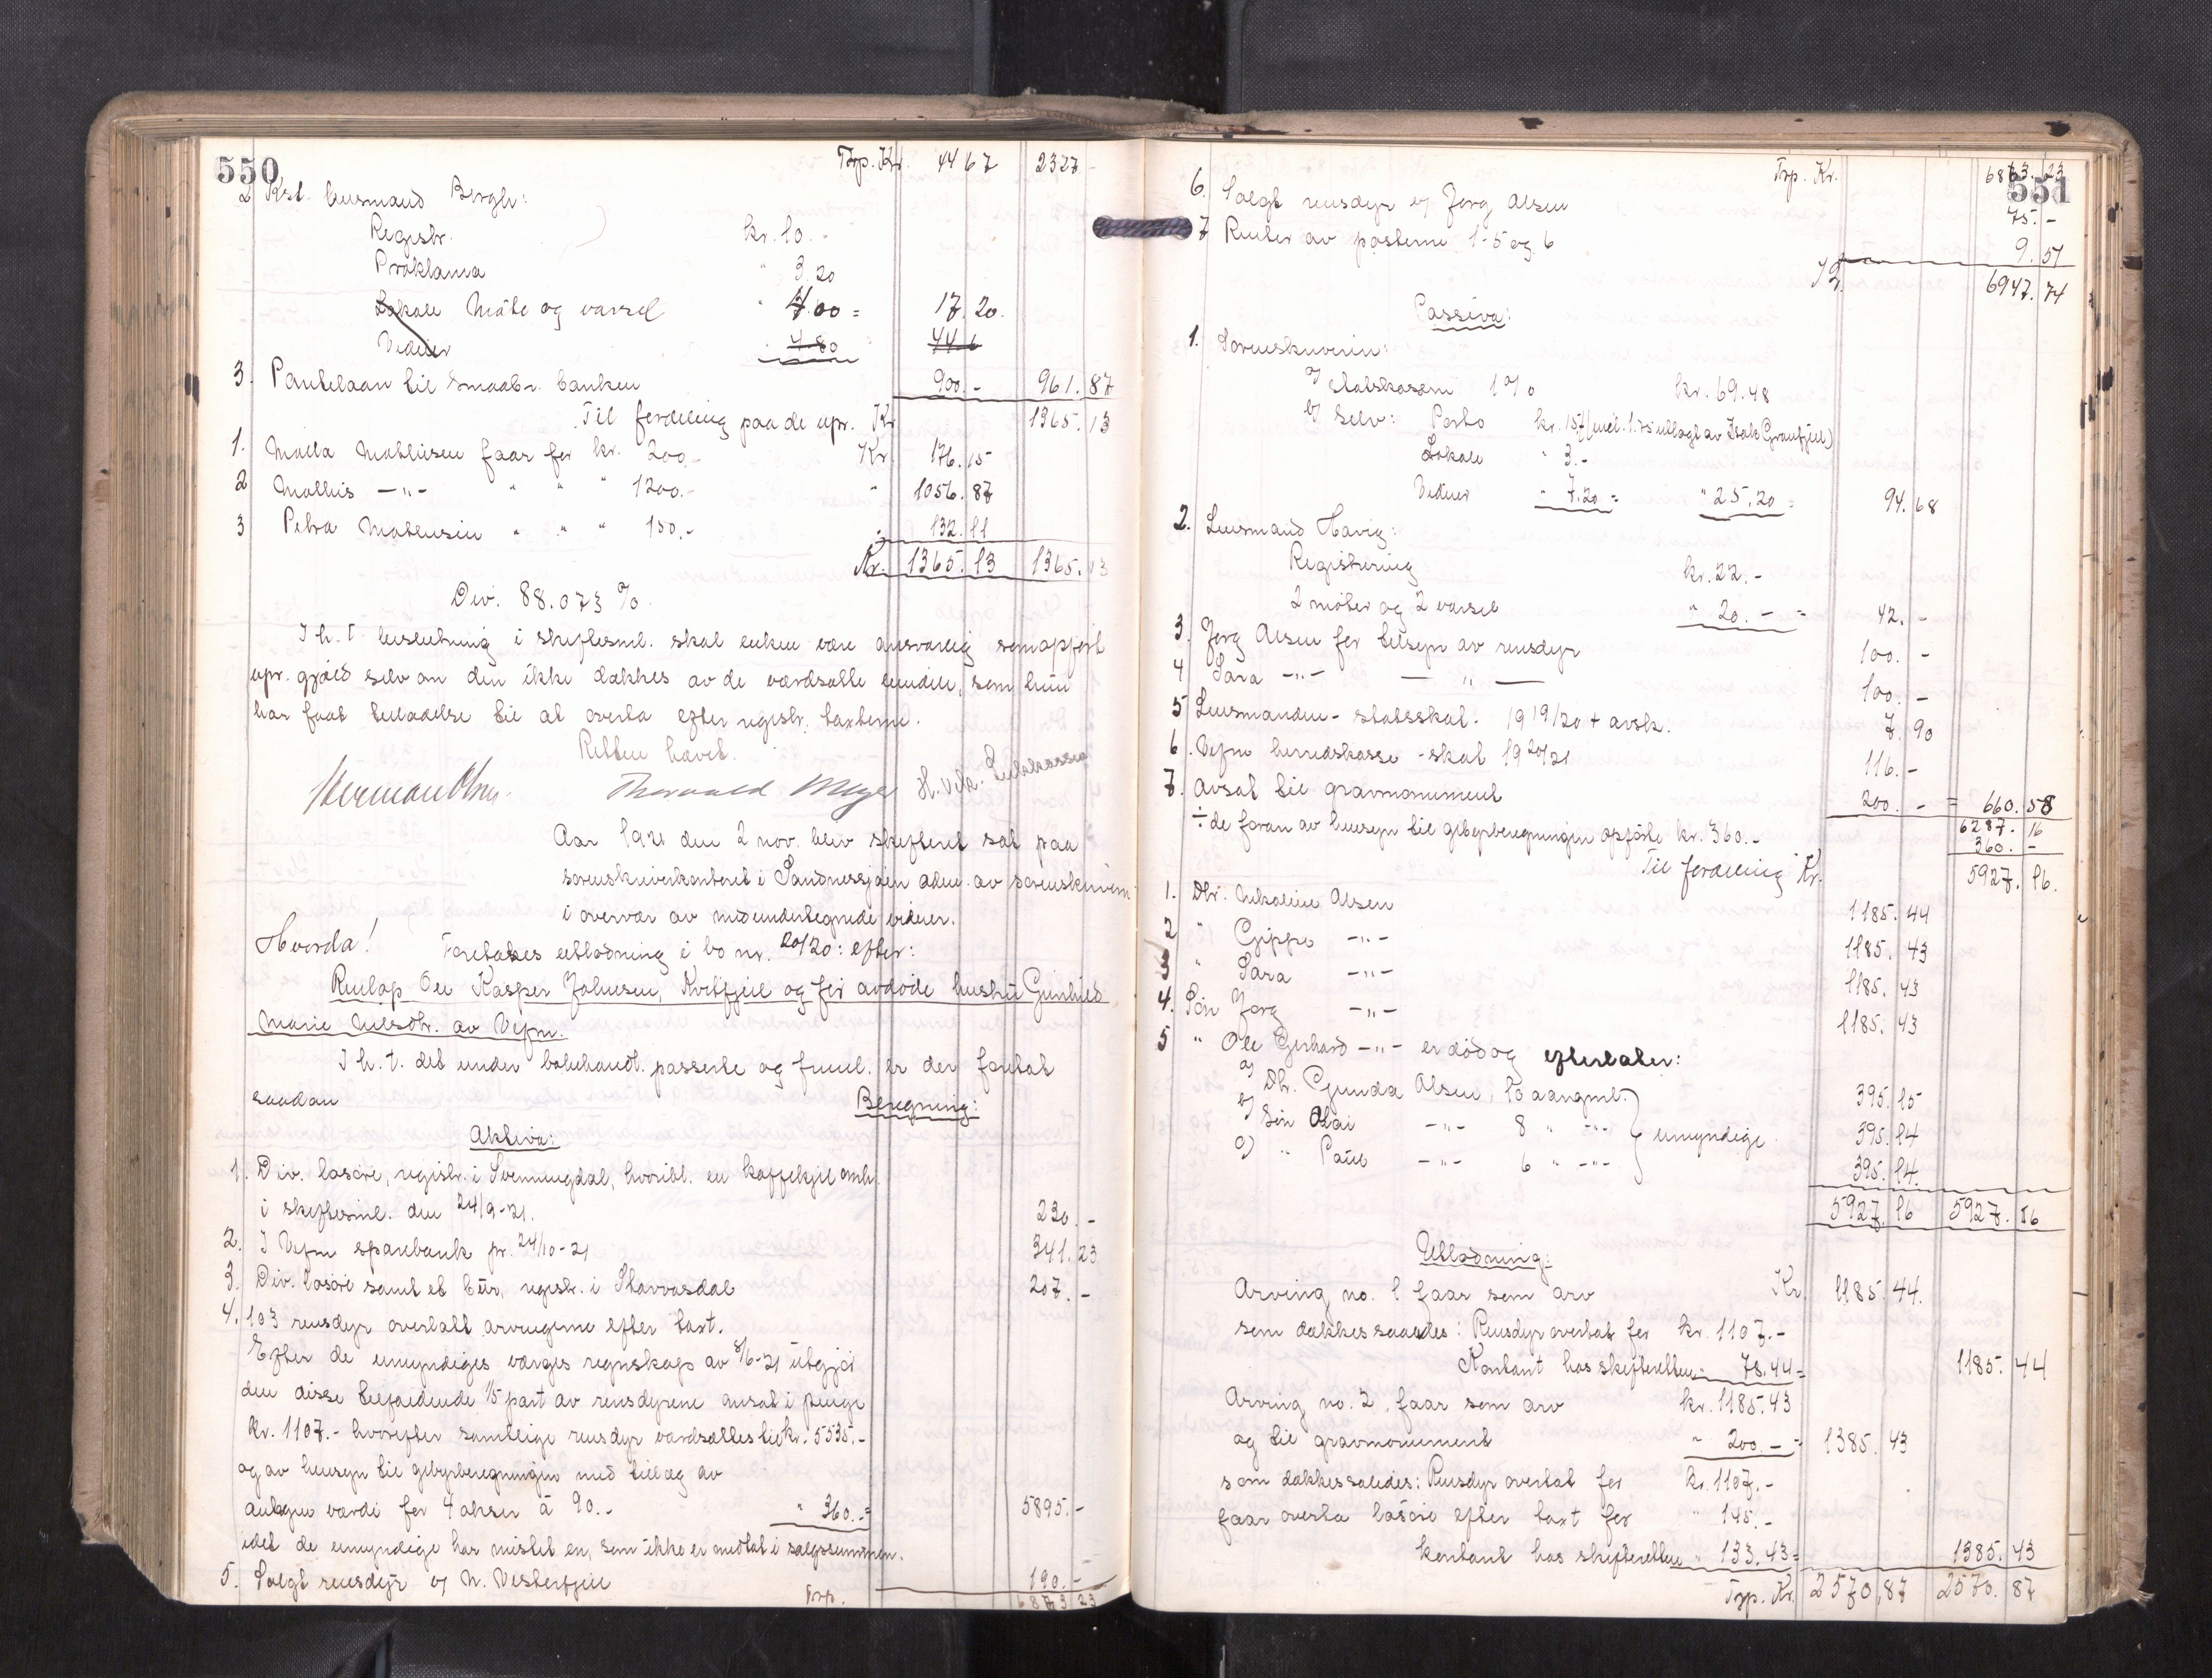 550
Trp. Kr. 44 67 2327 -
2 Kst. lensmand Bergh:
Registr. kr. 10.-
Proklama " 3.20
Lokale Møte og varsel " 4.00 = 17 20.
Vidner 4.80 44 6
3. Pantelaan til Smaabr. banken 900.- 961.87
Til fordeling paa de upr. Kr 1365.13
1. Malla Mathisen faar for kr. 200.- Kr. 176.15
2 Mathis -"- " " " 1200.- " 1056.87
3 Petra Mathisen " " " 150.- " 132.11
Kr. 1365.13 1365.13
Div. 88.073 %.
I h. t. beslutning i skiftesml. skal enken være ansvarlig som opført
upr. gjæld selv om den ikke dækkes av de værdsatte eiendele, som hun
har faat tilladelse til at overta efter registr. taxterne.
Retten hævet.
Herman Olsen. Thorvald Meyer
Aar 1921 den 2 nov. blev skifteret sat paa
sorenskriverkontoret i Sandnessjøen adm. av sorenskriveren
i overvær av medundertegnede vidner.
Hvorda! Foretokes utlodning i bo nr. 20/20: efter:
Renlap Ole Kasper Johnsen, Kvitfjeld og før avdøde hustru Gunhild
Marie Nilsdtr. av Vefsn.
I h. t. det under bobehandl. passerte og fremk. er der foretat
saadan Beregning:
Aktiva:
1. Div. løsøre, registr. i Svenningdal, hvoribl. en kaffekjel omh.
i skiftesml. den 24/9-21. 230.-
2. I Vefsn sparebank pr. 24/10-21 341.23
3. Div. løsøre samt et bur, registr. i Stavvasdal 207.-
4. 103 rensdyr overlatt arvingerne efter taxt.
Efter de umyndiges værges regnskap av 8/6-21 utgjør
den disse tilfaldende 1/5 part av rensdyrene ansat i penge
kr. 1107.- hvorefter samtlige rensdyr værdsættes til kr. 5535.-
og av hensyn til gebyrberegningen med tillæg av
antagen værdi for 4 okser à 90.- " 360.- = 5895.-
idet de umyndige har mistet en, som ikke er medtat i salgssummen.
5. Solgt rensdyr v/ N. Vesterfjell 190.-
Trp. 6863 23
551
Trp. Kr. 6863.23
6. Solgt rensdyr v/ Jorg Olsen 75.-
7 Renter av posterne 1-5 og 6 9.51
6947.74
Passiva:
1. Sorenskriveren:
a) statskassen 1 % kr. 69.48
b) Selv: Porto kr. 15,- (incl. 1.75 utlagt av Isak Granfjeld)
Lokale " 3.-
Vidner " 7.20 = " 25.20 = 94.68
2. Lensmand Havig:
Registrering kr. 22.-
2 møter og 2 varsel " 20.- = 42.-
3. Jorg Olsen for tilsyn av rensdyr 100.-
4 Sara -"- — " — 100.-
5 Lensmanden - statsskat. 1919/20 + avsk. 7.90
6. Vefsn herredskasse - skat 1920/21 116.-
7. Avsat til gravmonument 200.- = 660.58
6287.16
÷ de foran av hensyn til gebyrberegningen opførte kr. 360.- 360.-
Til fordeling Kr. 5927.16.
1. Dtr. Nikoline Olsen 1185.44
2 " Gippe -"- 1185.43
3 " Sara -"- 1185.43
4. Søn Jorg -"- 1185.43
5 " Ole Gerhard -"- er død og efterlater:
a) Dtr. Gunda Olsen, 10 aar gml. 395.15
b) Søn Olai -"- 8 " -"- umyndige. 395.14
c) " Paul -"- 6 " -"- 395.14.
5927.16 5927.16
Utlodning:
Arving no. 1 faar som arv Kr. 1185.44.
som dækkes saaledes: Rensdyr overtat for kr. 1107.-
Kontant hos skifteretten " 78.44 = 1185.44
Arving no. 2. faar som arv kr. 1185.43
og til gravmonument " 200.- = 1385.43
som dækkes saaledes: Rensdyr overtat for kr. 1107.-
faar overta løsøre efter taxt for " 145.-
kontant hos skifteretten " 133.43 = 1385.43
Trp. Kr. 2570.87 2570.87